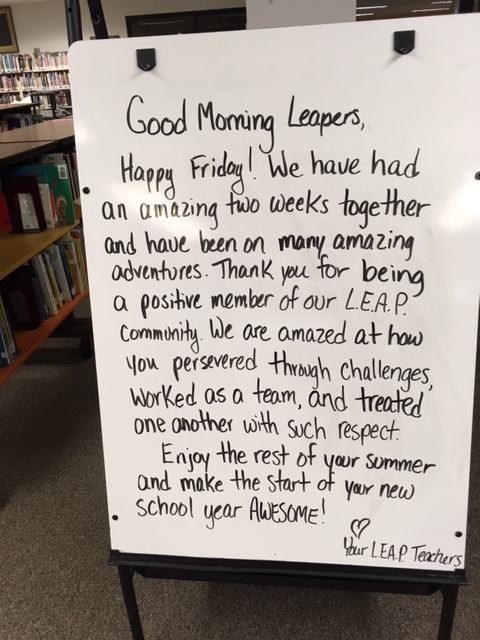 Good Morning Leapers,
Happy Friday! We have had
an amazing two weeks together
and have been on many amazing
adventures. Thank you for being
a positive member of our L.E.A.P.
community. We are amazed at how
you persevered through challenges,
worked as a team, and treated
one another with such respect.
Enjoy the rest of your summer
and make the start of your new
school year AWESOME!
♡
Your L.E.A.P. Teachers